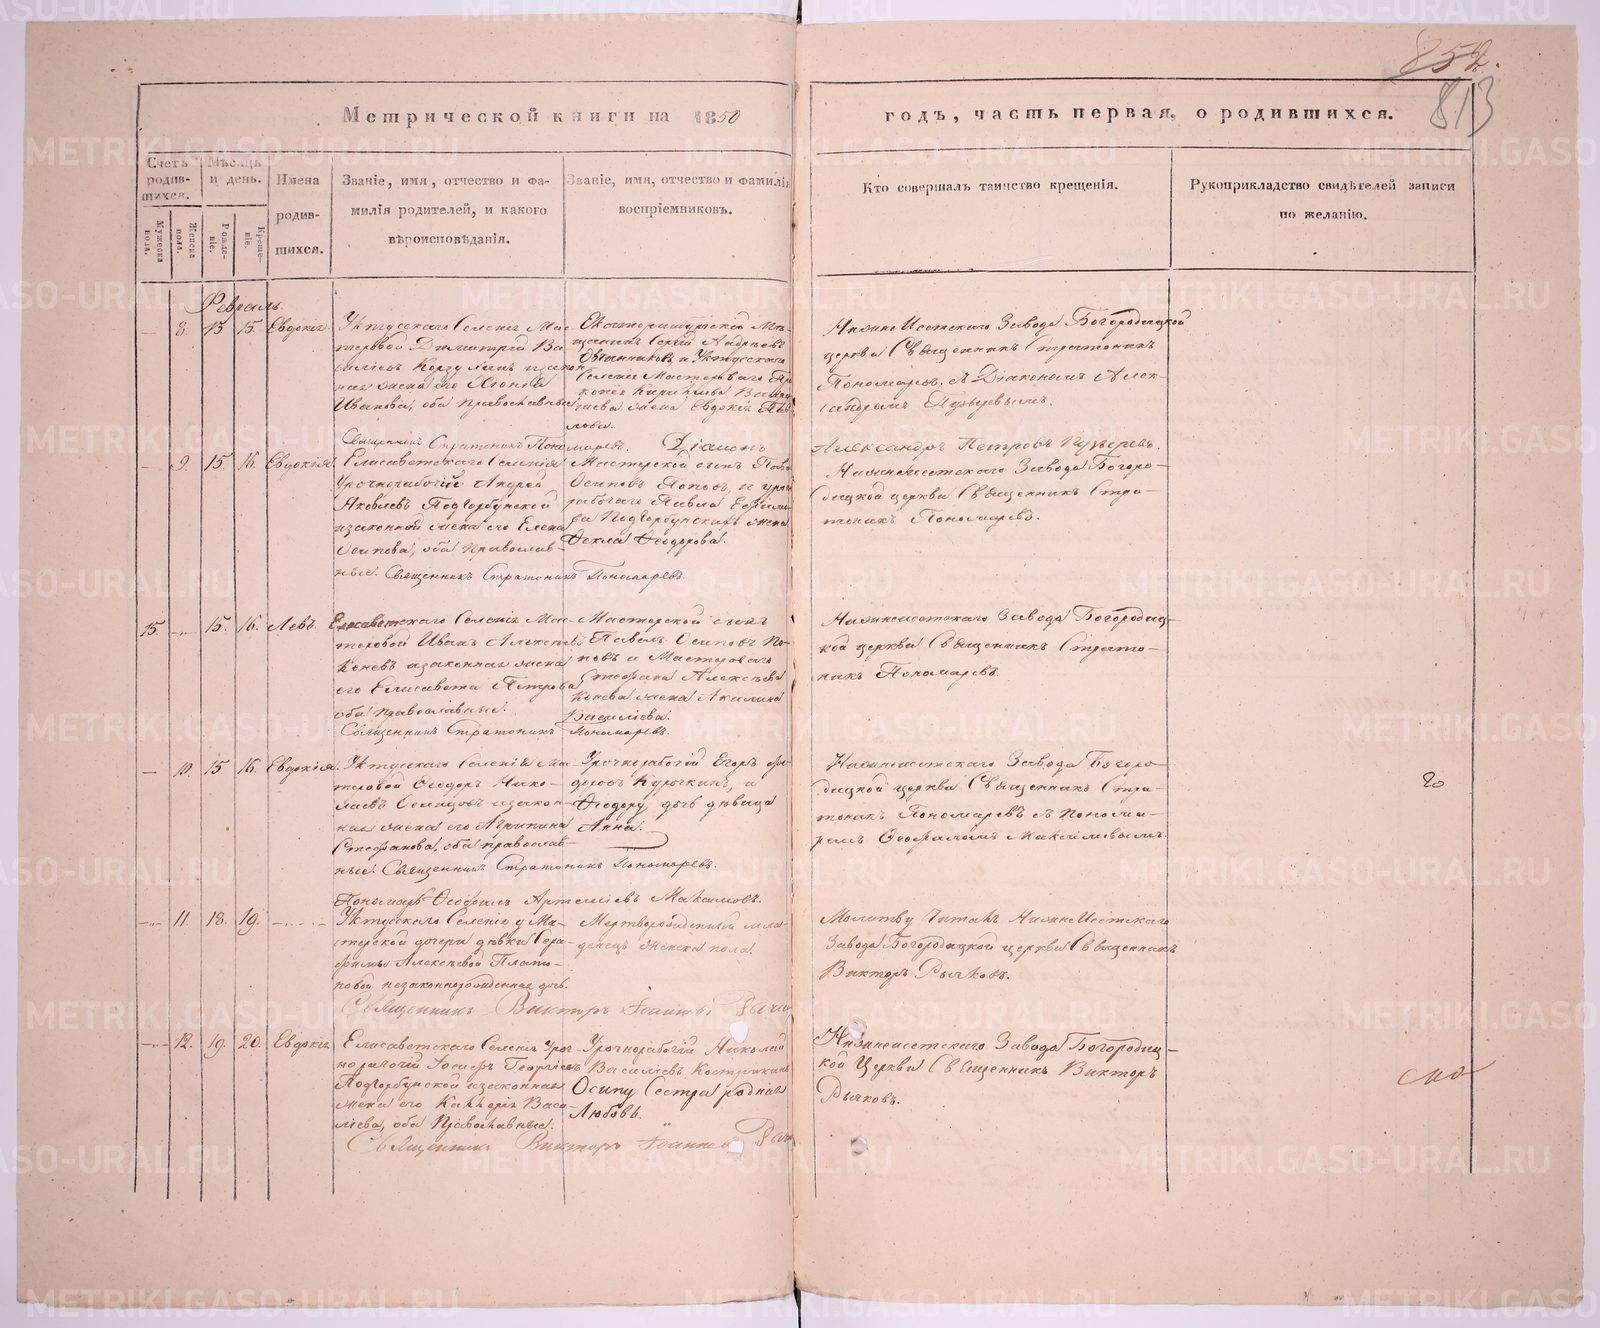 852.
813
Метрической книги на 1850
годъ, часть первая, о родившихся.
Счетъ родив-шихся.
Мужеска пола.
Женска пола.
Мѣсяцъ и день.
Рожде-ніе.
Креще-ніе.
Имена родив-шихся.
Званіе, имя, отчество и фа-
милія родителей, и какого
вѣроисповѣданія.
Званіе, имя, отчество и фамилія
воспріемниковъ.
Кто совершалъ таинство крещенія.
Рукоприкладство свидѣтелей записи
по желанію.
Февраль.
8. 15 15. Евдокія
Уктусскаго Селенія Мас-
теровой Димитрій Ва-
сильевъ
жена его
Иванова, оба православные
Екатеринбургскій Мѣ-
щанинъ Сергій Андреевъ
Овчинниковъ и Уктусскаго
Селенія Мастероваго
жена Евдокія
Нижне Исетскаго Завода Богородицкой
церкви Священникъ Стратоникъ
Пономаревъ, съ Діакономъ Алек-
сандромъ Пузыревымъ.
Священникъ Стратоникъ Пономаревъ. Діаконъ
Александръ Петровъ Пузыревъ.
9. 15. 16. Евдокія
Елисаветскаго Селенія
Урочнорабочій Андрей
Яковлевъ Подгорбунской
и законная жена его Елена
Осипова, оба православ-
ные. Священникъ Стратоникъ Пономаревъ.
Мастерской сынъ
Осиповъ Поповъ и
рабочаго Павла
Подгорбунскихъ жена
Ѳекла Ѳеодорова.
Нижнеисетскаго Завода Богоро-
дицкой церкви Священникъ Стра-
тоникъ Пономаревъ.
15. 15. 16. Левъ.
Елисаветскаго Селенія Мас-
теровой Иванъ Алексѣевъ
Коневъ и законная жена
его Елисавета Петрова
оба православные.
Священникъ Стратоникъ Пономаревъ.
Мастерской сынъ
Павелъ Осиповъ По-
повъ и Мастероваго
Стефана Алексѣева
Конева жена Акилина
Василіева.
Нижнеисетскаго Завода Богородиц-
кой церкви Священникъ Страто-
никъ Пономаревъ.
10. 15 16. Евдокія.
Уктусскаго Селенія Ма-
теровой Ѳеодоръ Нико-
лаевъ и закон-
ная жена его Агрипина
Стефанова, оба православ-
ные. Священникъ Стратоникъ Пономаревъ.
Урочнорабочій Егоръ Ѳе-
доровъ Курочкинъ, и
Ѳеодору дочь дѣвица
Анна.
Нижнеисетскаго Завода Богоро-
дицкой церкви Священникъ Стра-
тоникъ Пономаревъ съ Понома-
ремъ Ѳеофиломъ Максимовымъ.
20
Пономарь Ѳеофилъ Артеміевъ Максимовъ.
11. 18. 19.
Уктусскаго Селенія у Ма-
стерской дочери дѣвки Сера-
фимы Алексѣевой Плато-
новой незаконнорожденная дочь.
Мертворожденный мла-
денецъ женска пола.
Молитву читалъ Нижне Исетскаго
Завода Богородицкой церкви Священникъ
Викторъ Рычковъ.
Священникъ Викторъ Іоанновъ
12. 19. 20. Евдокія
Елисаветскаго Селенія Уроч-
норабочій Іосифъ Георгіевъ
Подгорбунской и законная
жена его Васи-
ліева, оба Православные.
Урочнорабочій Николай
Василіевъ
Осипу Сестра родная
Любовь.
Нижнеисетскаго Завода Богородиц-
кой Церкви Священникъ Викторъ
Рычковъ.
Священникъ Викторъ Іоанновъ
METRIKI.GASO-URAL.RU